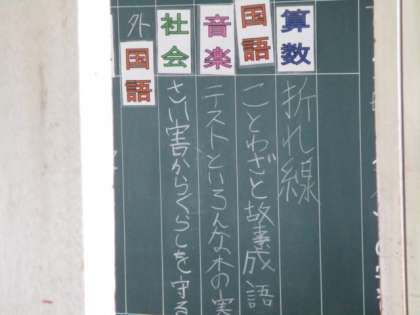 算数
折れ線
国語
ことわざと故事成語
音楽
テストといろんな木の実
社会
さい害からくらしを守る
外国語